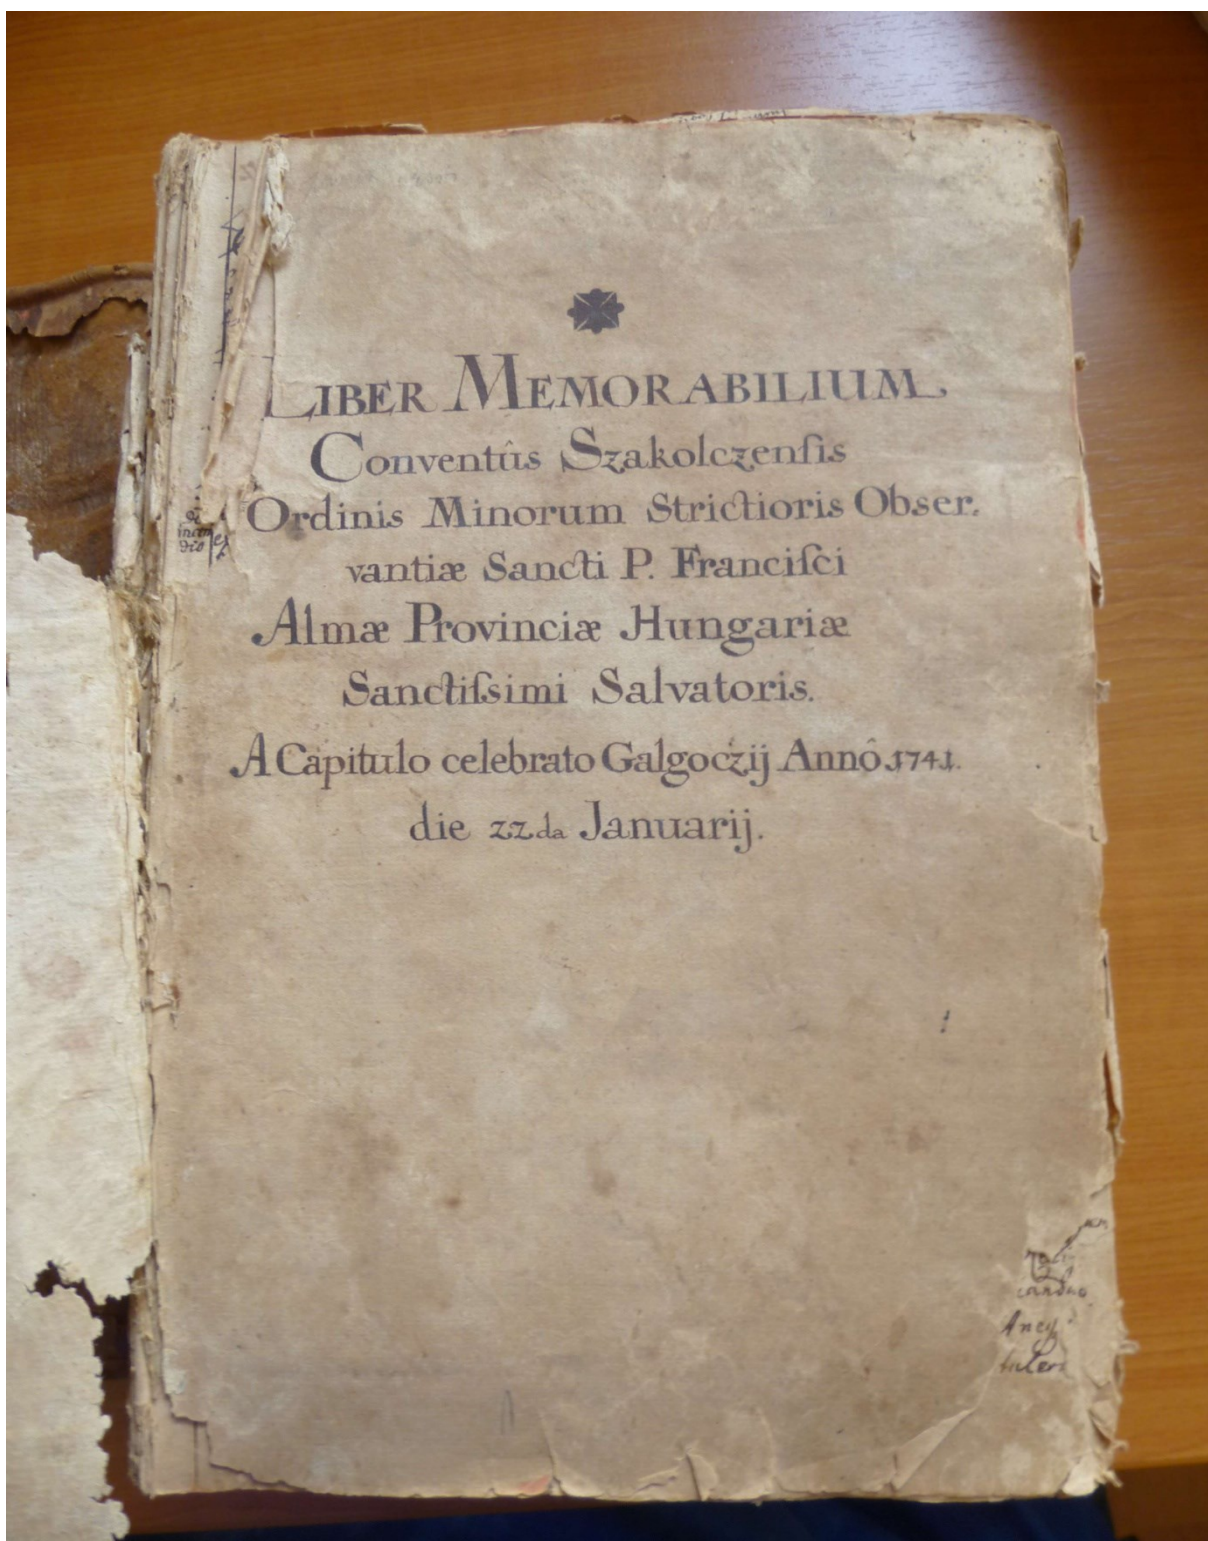 LIBER MEMORABILIUM
Conventûs Szakolczenſis
Ordinis Minorum Strictioris Obser.
vantiæ Sancti P. Franciſci
Almæ Provinciæ Hungariæ
Sanctiſsimi Salvatoris.
A Capitulo celebrato Galgoczij Annô 1741.
die 22da Januarij.